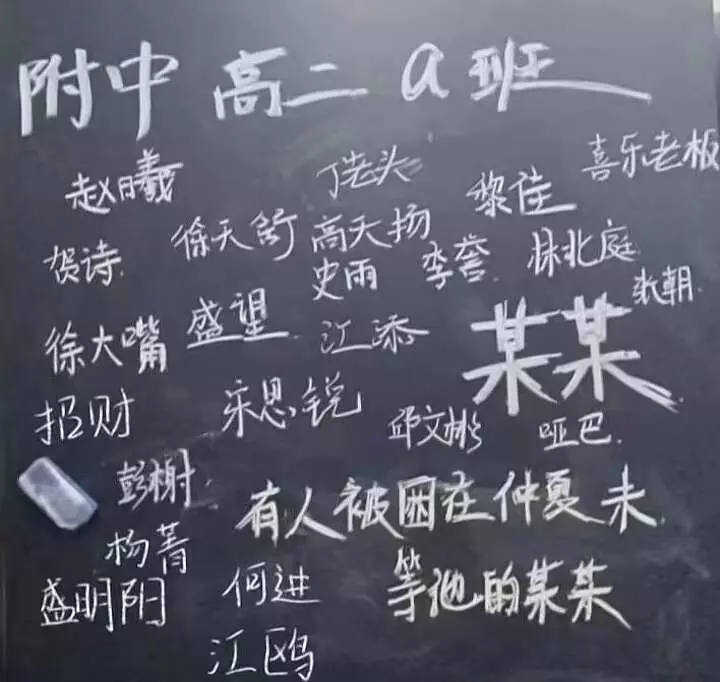 附中 高二 a班
赵曦曦
丁老头
黎佳
喜乐老板
贺诗
徐天舒
高天扬
史雨
李誉
林北庭
张朝
徐大嘴
盛望
江添
某某
招财
宋思锐
邱文彬
哑巴
彭榭
有人被困在仲夏末
杨菁
盛明阳
何进
等他的某某
江鸥